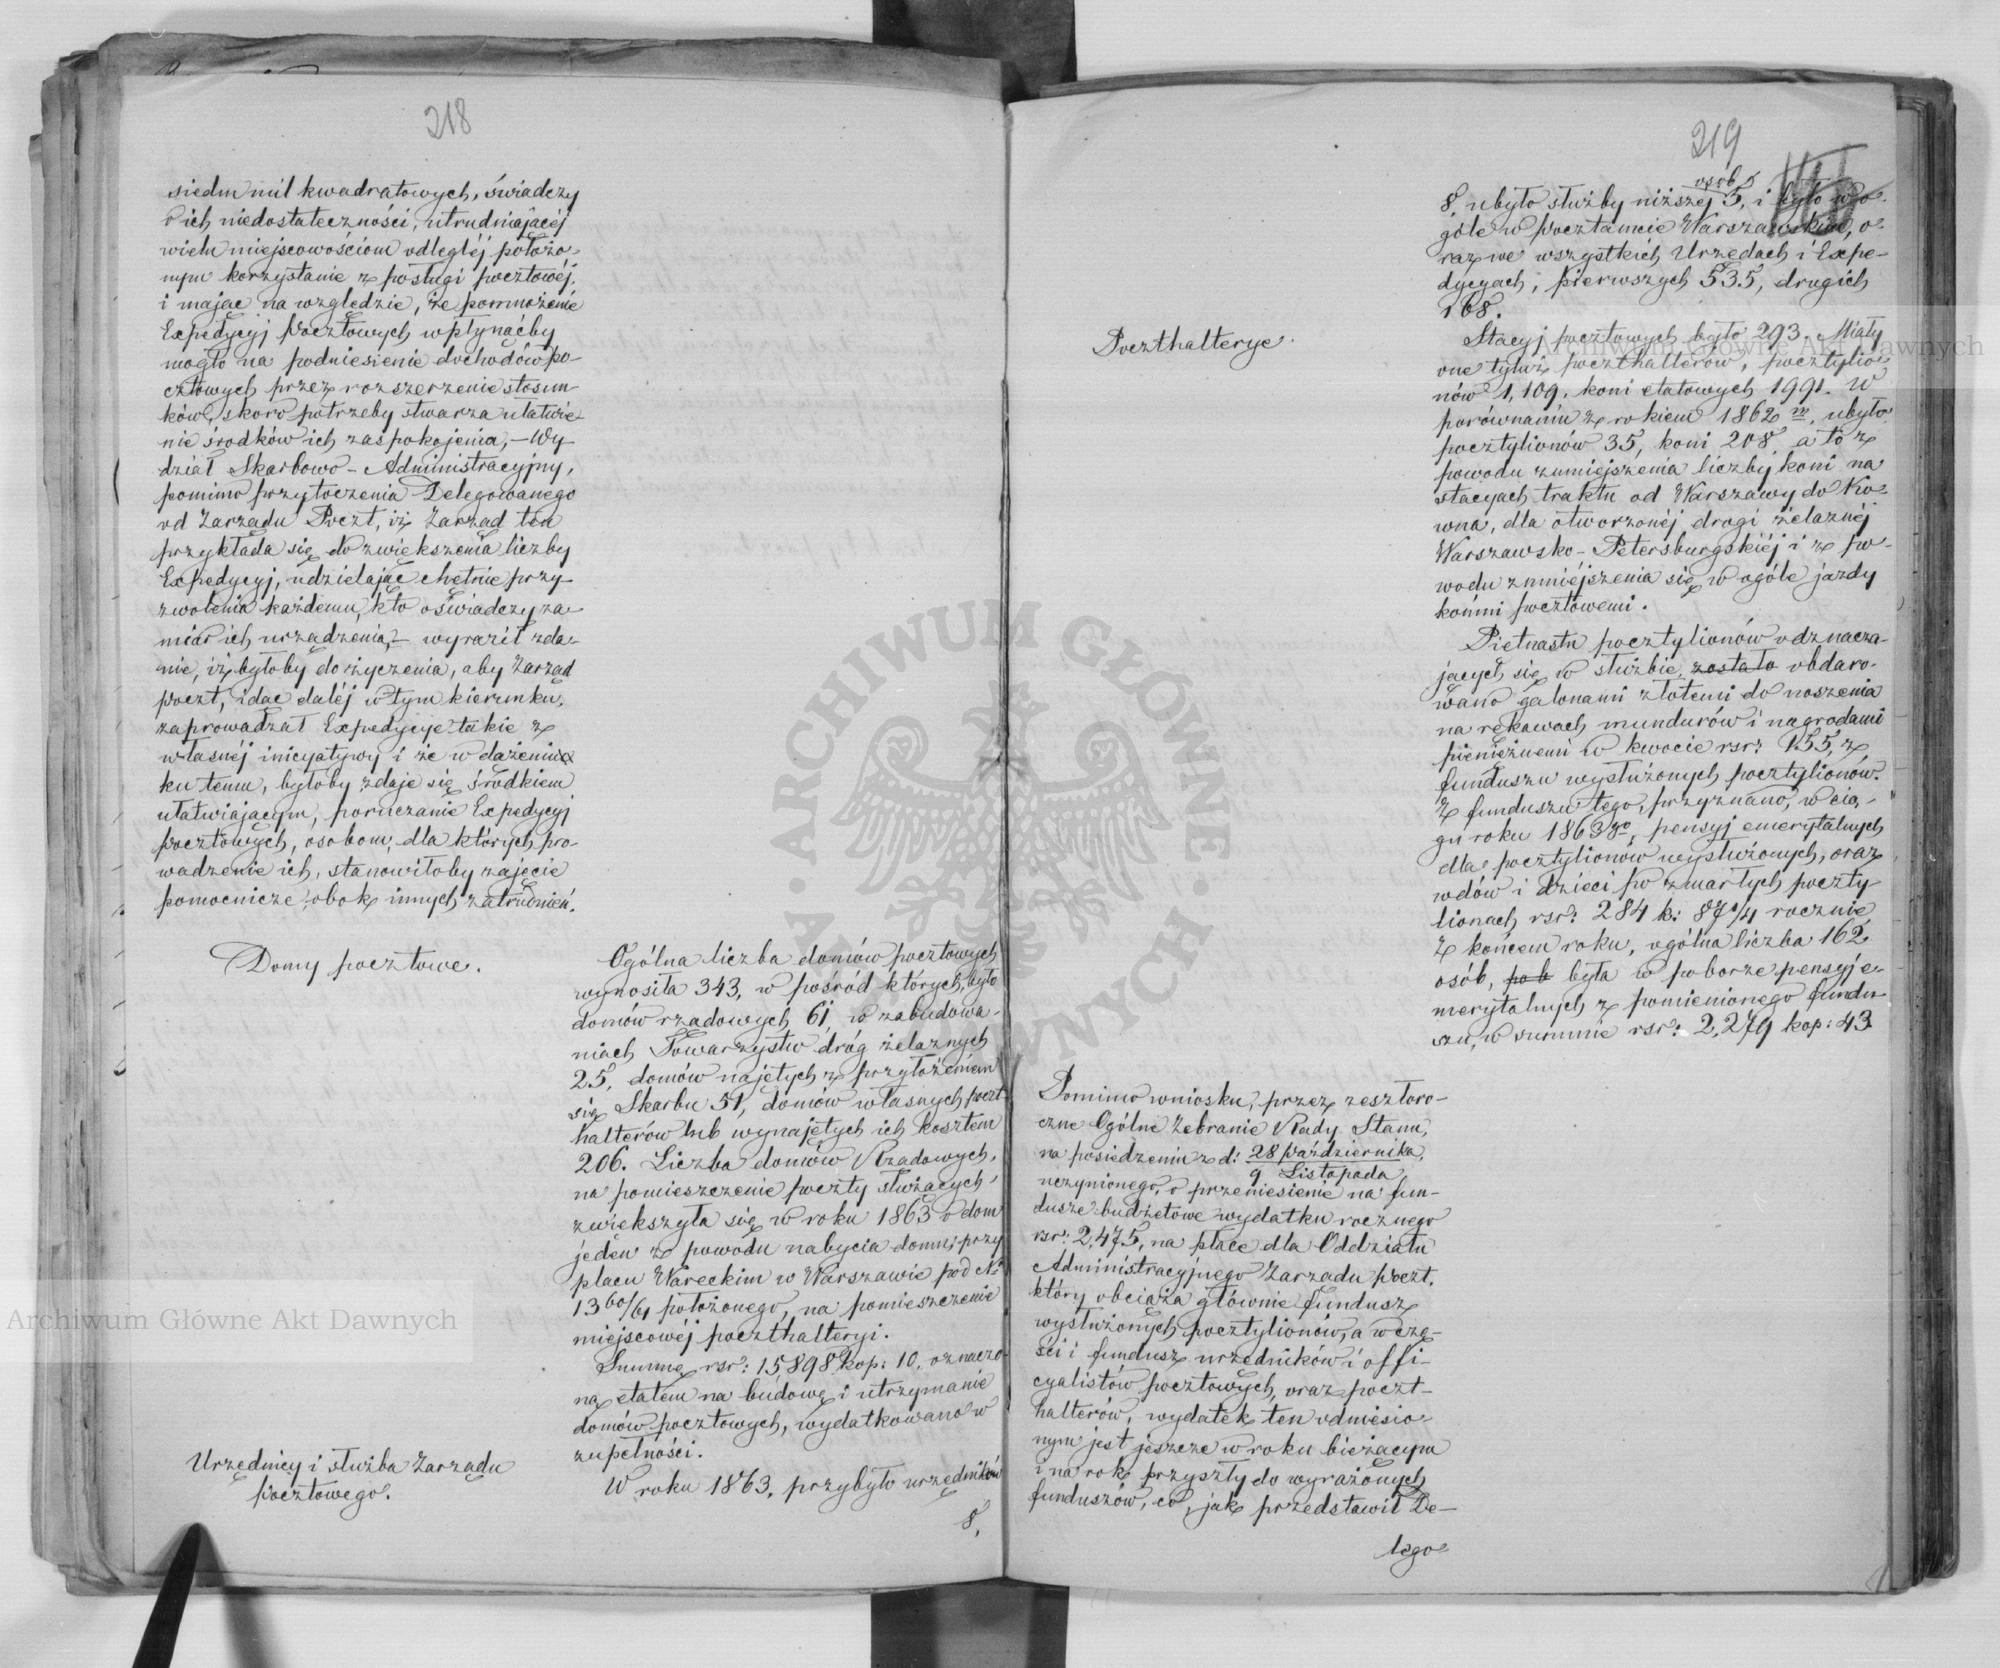 218
siedm mil kwadratowych, świadczy
o ich niedostateczności, utrudniającej
wielu miejscowościom odległej położo-
nym korzystanie z posługi pocztowéj,
i mając na względzie, że pomnożenie
Expedycyj Pocztowych wpłynąćby
mogło na podniesienie dochodów po-
cztowych przez rozszerzenie stosun-
ków, skoro potrzeby stwarza ułatwie-
nie środków ich zaspokojenia, – Wy-
dział Skarbowo-Administracyjny,
pomimo przytoczenia Delegowanego
od Zarządu Poczt, iż Zarząd ten
przykłada się do zwiększenia liczby
Expedycyj, udzielając chętnie przy-
zwolenia każdemu, kto oświadczy za-
miar ich urządzenia, – wyraził zda-
nie, iż byłoby do życzenia, aby Zarząd
Poczt, idąc daléj w tym kierunku,
zaprowadzał Expedycye takie z
własnéj inicyatywy i że w dążeniu
ku temu, byłoby zdaje się środkiem
ułatwiającym, poruczanie Expedycyj
Pocztowych, osobom, dla których pro-
wadzenie ich, stanowiłoby zajęcie
pomocnicze obok innych zatrudnień.
Domy pocztowe.
Ogólna liczba domów pocztowych
wynosiła 343, w pośród których, było
domów rządowych 61, w zabudowa-
niach Towarzystw dróg żelaznych
25, domów najętych z przyłożeniem
się Skarbu 51, domów własnych poczt-
halterów lub wynajętych ich kosztem
206. Liczba domów Rządowych,
na pomieszczenie poczty służących,
zwiększyła się w roku 1863 o dom
jeden z powodu nabycia domu, przy
placu Wareckim w Warszawie pod №
1360/61 położonego, na pomieszczenie
miejscowéj poczthalteryi.
Summę rsr: 15898 kop: 10, oznaczo-
ną etatem na budowę i utrzymanie
domów pocztowych, wydatkowano w
zupełności.
Urzędnicy i służba Zarządu
Pocztowego.
W roku 1863, przybyło urzędników
8,
219
8, ubyło służby niższej osób 5, i było w o-
góle w Pocztamcie Warszawskim, o-
raz we wszystkich Urzędach i Expe-
dycyach, pierwszych 535, drugich
168.
Poczthalterye.
Stacyj pocztowych było 293. Miały
one tyluż poczthalterów, pocztylio-
nów 1,109, koni etatowych 1991. W
porównaniu z rokiem 1862 m, ubyło
pocztylionów 35, koni 208, a to z
powodu zmniejszenia liczby koni na
stacyach traktu od Warszawy do Ko-
wna, dla otworzonéj drogi żelaznéj
Warszawsko-Petersburgskiéj i z po-
wodu zmniejszenia się w ogóle jazdy
końmi pocztowemi.
Piętnastu pocztylionów odznacza-
jących się w służbie, zostało obdaro-
wano galonami złotemi do noszenia
na rękawach mundurów i nagrodami
pieniężnemi w kwocie rsr: 155, z
funduszu wysłużonych pocztylionów.
Z funduszu tego, przyznano, w cią-
gu roku 1863 go, pensyj emerytalnych
dla pocztylionów wysłużonych, oraz
wdów i dzieci po zmarłych poczty-
lionach rsr: 284 k: 87 1/4 rocznie
Z końcem roku, ogólna liczba 162
osób, pob była w poborze pensyj e-
merytalnych z pomienionego fundu-
szu, w summie rsr: 2,279 kop: 43.
Pomimo wniosku, przez zeszłoro-
czne Ogólne Zebranie Rady Stanu,
na posiedzeniu z d: 28 Października
9 Listopada
uczynionego, o przeniesienie na fun-
dusze budżetowe wydatku rocznego
rsr: 2,475, na płace dla Oddziału
Administracyjnego Zarządu Poczt.
który obciąża głównie fundusz
wysłużonych pocztylionów, a w czę-
ści i fundusz urzędników i offi-
cyalistów pocztowych, oraz poczt-
halterów, wydatek ten odniesio-
nym jest jeszcze w roku bieżącym
i na rok przyszły do wyrażonych
funduszów, co, jak przedstawił De-
lego-
Archiwum Główne Akt Dawnych
Archiwum Główne Akt Dawnych
ARCHIWUM GŁÓWNE AKT DAWNYCH